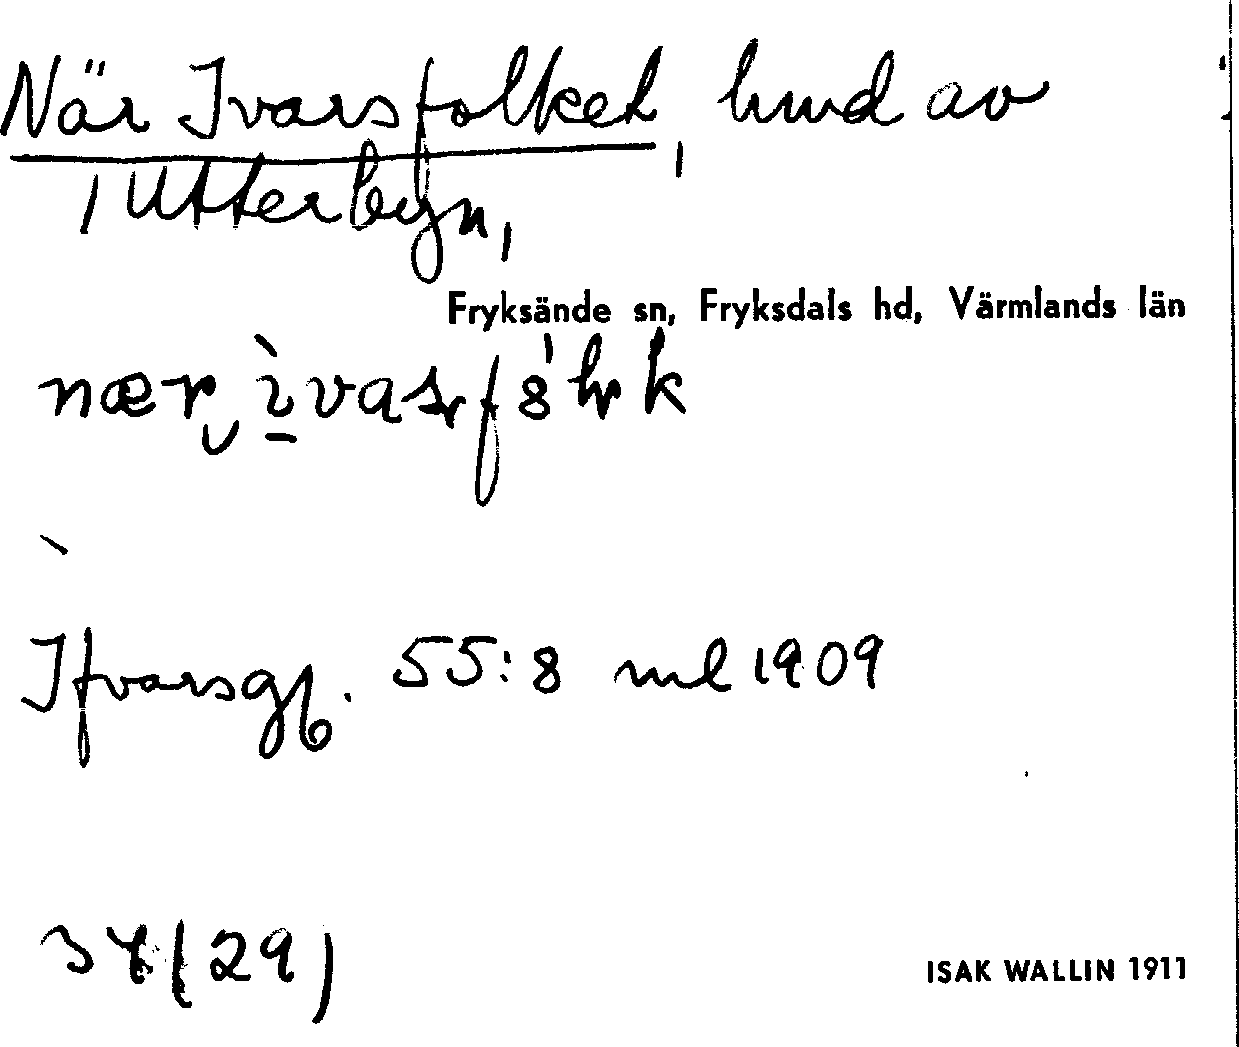 När Ivarsfolket, hmd av
Utterbyn,
Fryksände sn, Fryksdals hd, Värmlands län
Ifvarsgg. 55:8 ml 1909
(29)
ISAK WALLIN 1911